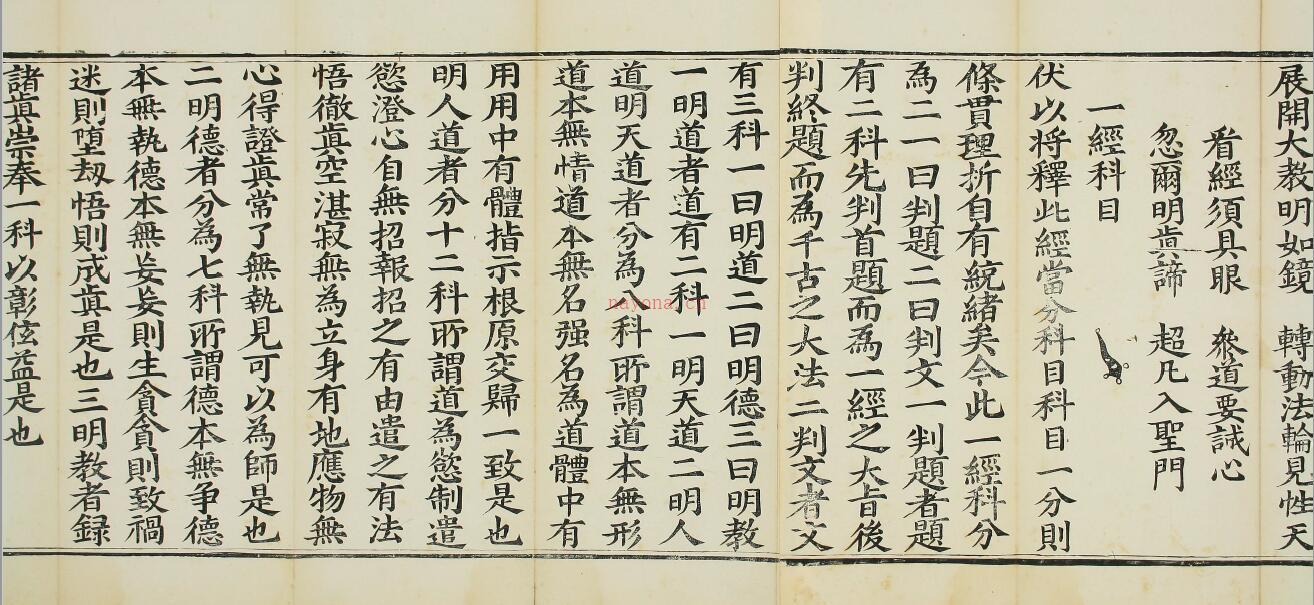 展開大教明如鏡　轉動法輪見性天
看經須具眼　衆道要誠心
忽爾明眞諦　超凡入聖門
一經科目
伏以将釋此經當分科目科目一分則
條貫理折自有統緒矣今此一經科分
為二一曰判題二曰判文一判題者題
有二科先判首題而為一經之大旨後
判終題而為千古之大法二判文者文
有三科一曰明道二曰明德三曰明教
一明道者道有二科一明天道二明人
道明天道者分為八科所謂道本無形
道本無情道本無名强名為道體中有
用用中有體指示根原交歸一致是也
明人道者分十二科所謂道為慾制遣
慾澄心自無招報招之有由遣之有法
悟徹眞空湛寂無為立身有地應物無
心得證眞常了無執見可以為師是也
二明德者分為七科所謂德本無争德
本無執德本無妄妄則生貪貪則致禍
迷則堕刼悟則成眞是也三明教者録
諸眞崇奉一科以彰佐益是也
nayona.cn